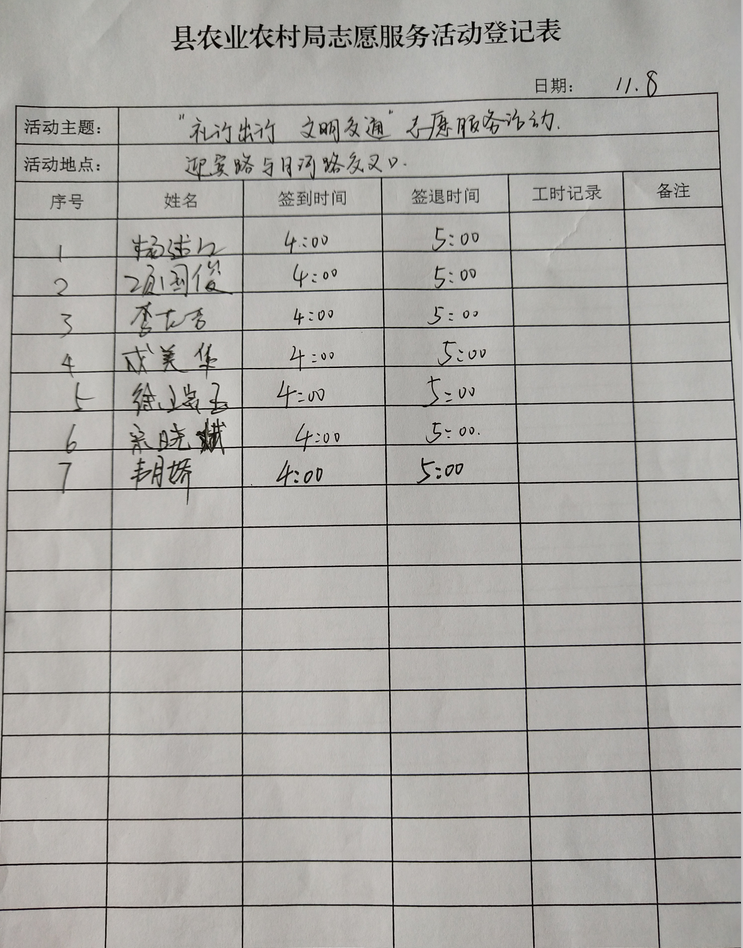 县农业农村局志愿服务活动登记表
日期: 11.8
活动主题: "礼行出行 文明交通"志愿服务活动.
活动地点: 迎宾路与月河路交叉口.
序号 姓名 签到时间 签退时间 工时记录 备注
1 4:00 5:00
2 项国俊 4:00 5:00
3 4:00 5:00
4 成美华 4:00 5:00
5 4:00 5:00
6 宗晓 4:00 5:00.
7 韦月娇 4:00 5:00